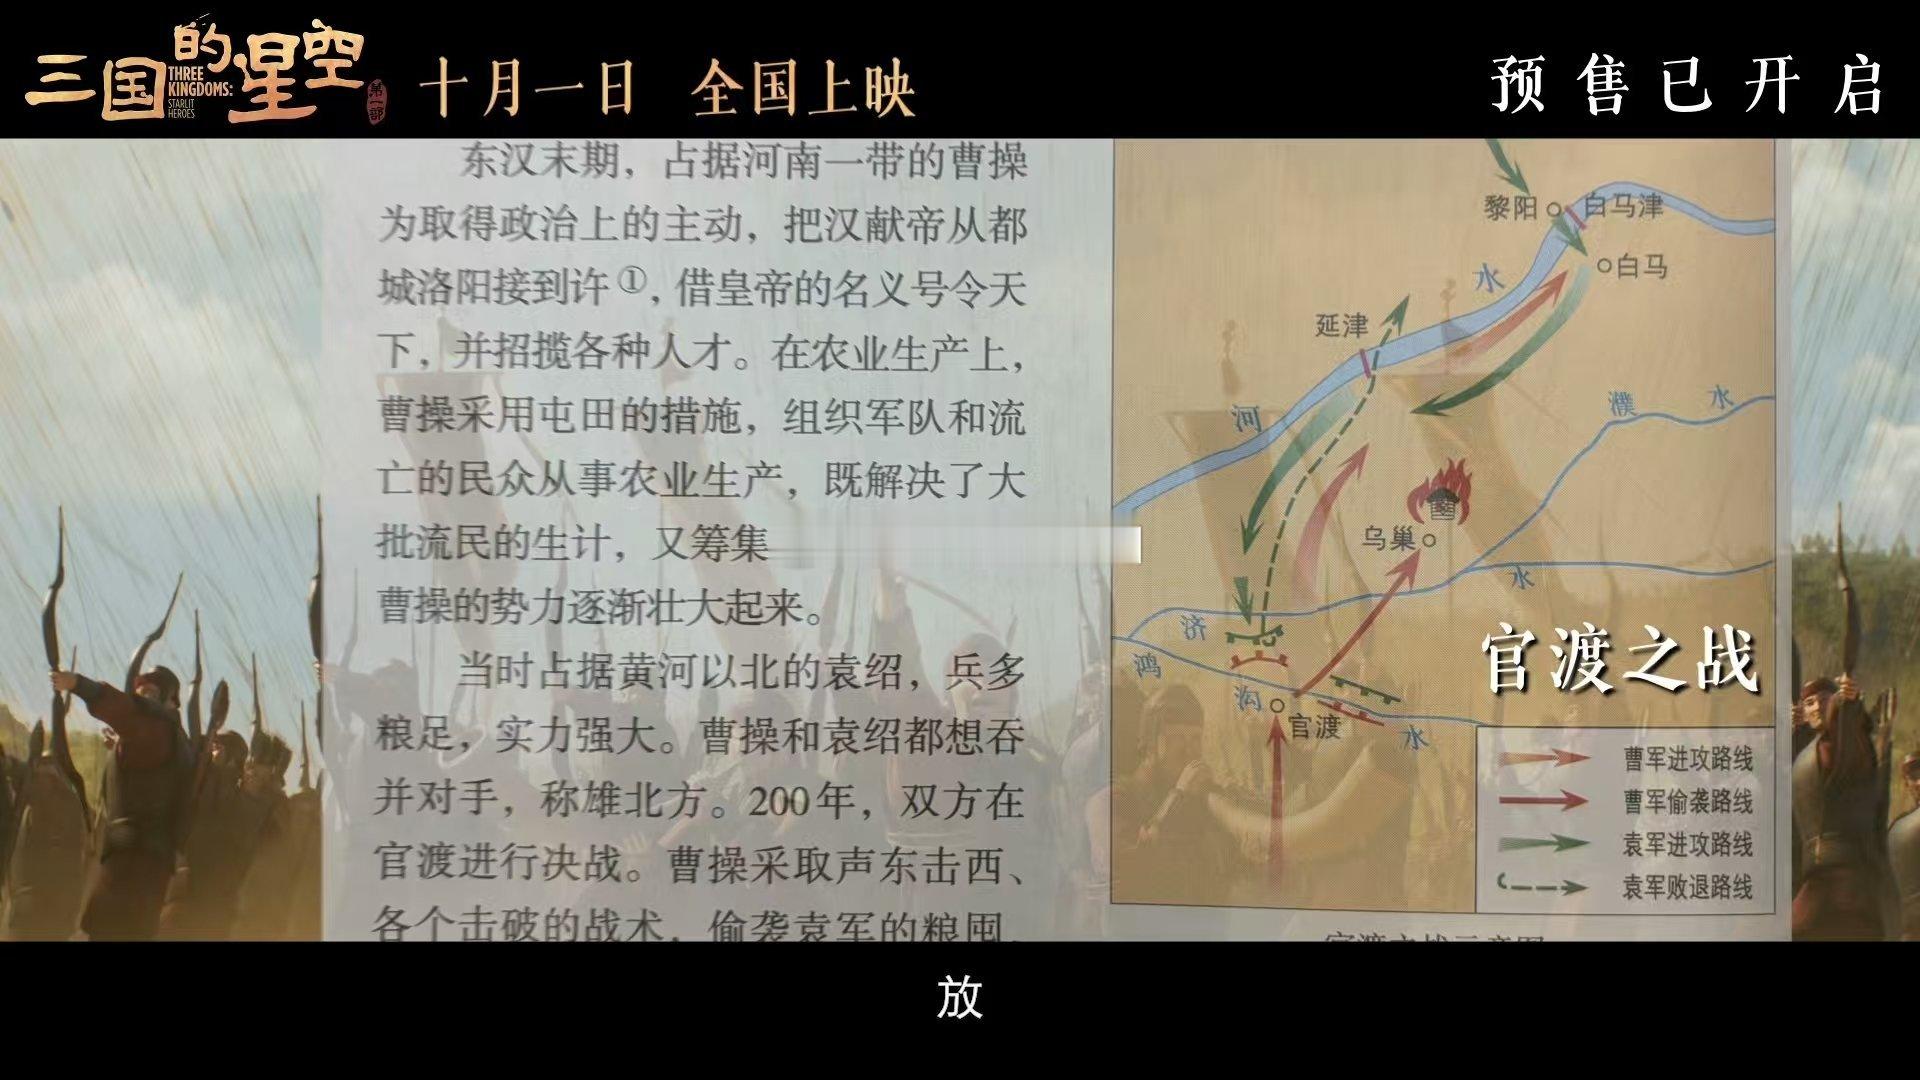 三国的星空
THREE
KINGDOMS:
STARLIT
HEROES
第一部
十月一日 全国上映
预售已开启
东汉末期，占据河南一带的曹操
为取得政治上的主动，把汉献帝从都
城洛阳接到许①，借皇帝的名义号令天
下，并招揽各种人才。在农业生产上，
曹操采用屯田的措施，组织军队和流
亡的民众从事农业生产，既解决了大
批流民的生计，又筹集
曹操的势力逐渐壮大起来。
当时占据黄河以北的袁绍，兵多
粮足，实力强大。曹操和袁绍都想吞
并对手，称雄北方。200年，双方在
官渡进行决战。曹操采取声东击西、
各个击破的战术，偷袭袁军的粮囤，
黎阳
白马津
白马
水
延津
河
濮 水
乌巢
水
济
鸿
沟
官渡
水
官渡之战
曹军进攻路线
曹军偷袭路线
袁军进攻路线
袁军败退路线
放